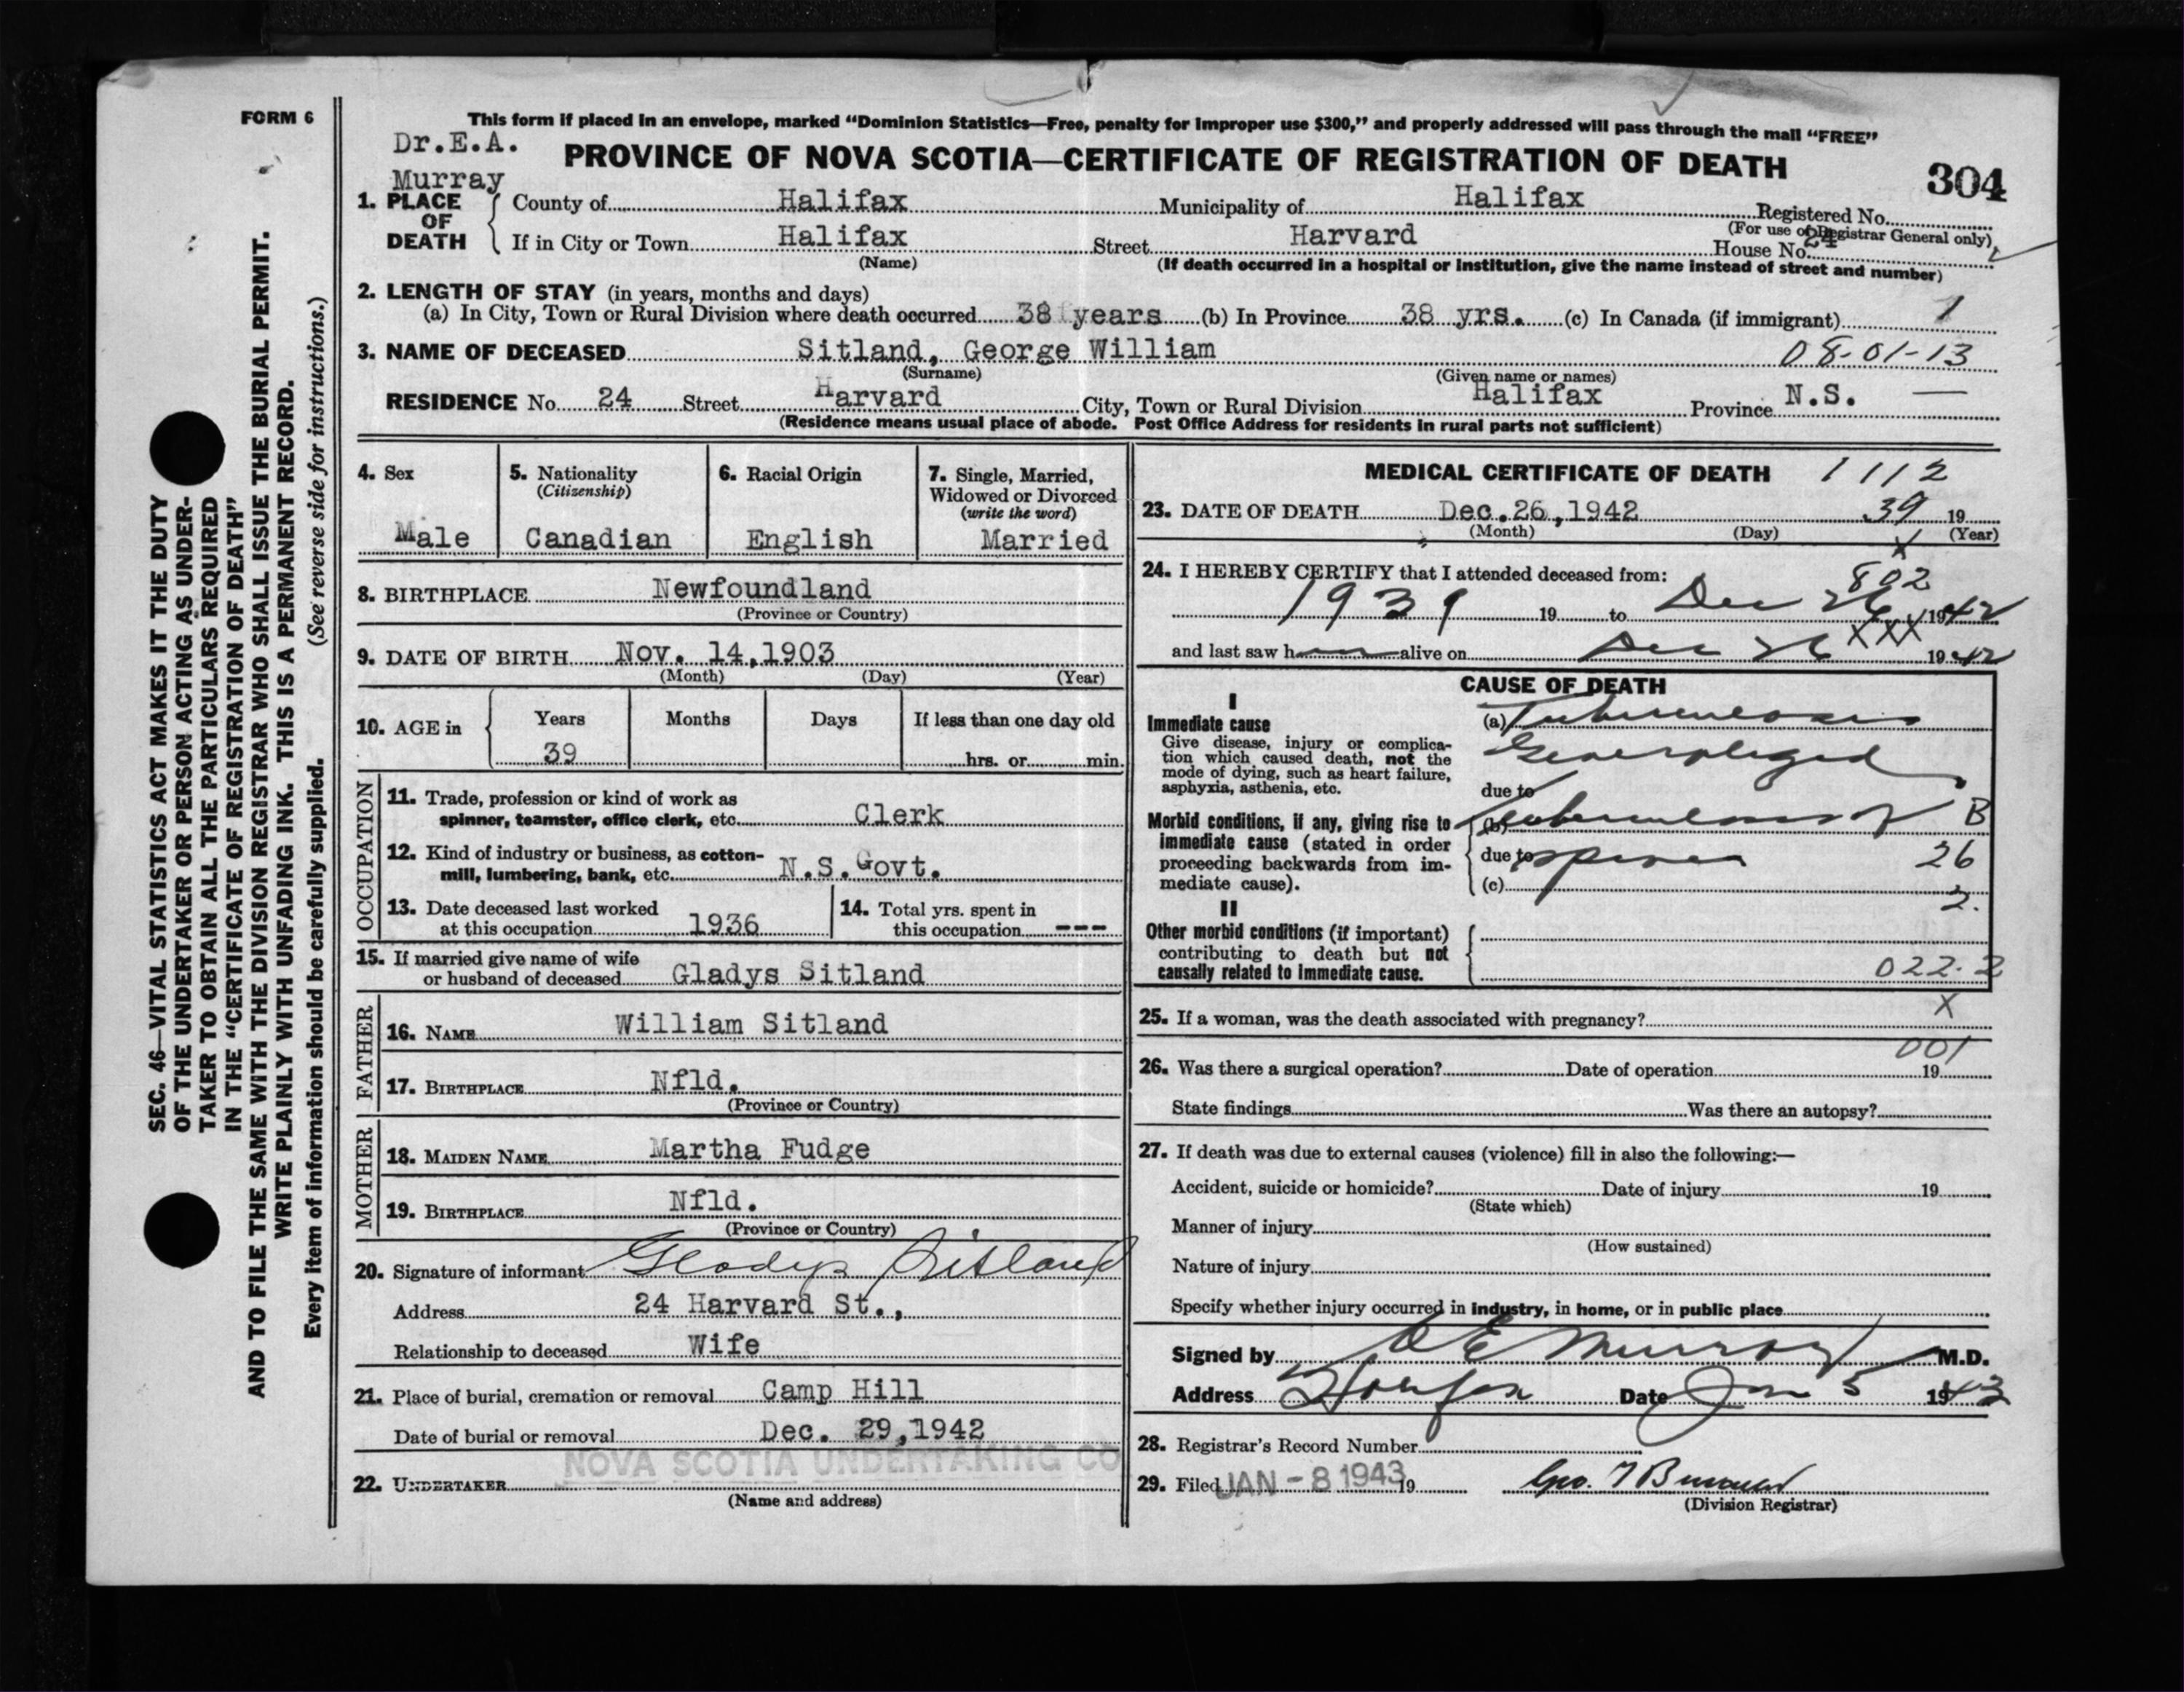 FORM 6
This form if placed in an envelope, marked “Dominion Statistics—Free, penalty for improper use $300,” and properly addressed will pass through the mail “FREE”
Dr.E.A.
Murray
PROVINCE OF NOVA SCOTIA—CERTIFICATE OF REGISTRATION OF DEATH
304
1. PLACE OF DEATH
County of Halifax Municipality of Halifax Registered No.
(For use of Registrar General only)
If in City or Town Halifax Street Harvard House No. 24
(Name) (If death occurred in a hospital or institution, give the name instead of street and number)
2. LENGTH OF STAY (in years, months and days)
(a) In City, Town or Rural Division where death occurred 38 years (b) In Province 38 yrs. (c) In Canada (if immigrant) 1
3. NAME OF DECEASED Sitland, George William 08-01-13
(Surname) (Given name or names)
RESIDENCE No. 24 Street Harvard City, Town or Rural Division Halifax Province N.S. —
(Residence means usual place of abode. Post Office Address for residents in rural parts not sufficient)
4. Sex
Male
5. Nationality
(Citizenship)
Canadian
6. Racial Origin
English
7. Single, Married,
Widowed or Divorced
(write the word)
Married
8. BIRTHPLACE Newfoundland
(Province or Country)
9. DATE OF BIRTH Nov. 14,1903
(Month) (Day) (Year)
10. AGE in Years Months Days If less than one day old
39 hrs. or min.
OCCUPATION
11. Trade, profession or kind of work as
spinner, teamster, office clerk, etc. Clerk
12. Kind of industry or business, as cotton-
mill, lumbering, bank, etc. N.S.Govt.
13. Date deceased last worked
at this occupation 1936
14. Total yrs. spent in
this occupation ---
15. If married give name of wife
or husband of deceased Gladys Sitland
FATHER
16. NAME William Sitland
17. BIRTHPLACE Nfld.
(Province or Country)
MOTHER
18. MAIDEN NAME Martha Fudge
19. BIRTHPLACE Nfld.
(Province or Country)
20. Signature of informant Gladys Sitland
Address 24 Harvard St.,
Relationship to deceased Wife
21. Place of burial, cremation or removal Camp Hill
Date of burial or removal Dec. 29,1942
NOVA SCOTIA UNDERTAKING CO
22. UNDERTAKER
(Name and address)
MEDICAL CERTIFICATE OF DEATH 1112
23. DATE OF DEATH Dec.26,1942 39 19
(Month) (Day) (Year)
X
24. I HEREBY CERTIFY that I attended deceased from:
802
1939 19 to Dec 26 1942
XXX
and last saw h alive on Dec 26 1942
CAUSE OF DEATH
I
Immediate cause
Give disease, injury or complica-
tion which caused death, not the
mode of dying, such as heart failure,
asphyxia, asthenia, etc.
(a) Tuberculosis
Generalized
due to
Morbid conditions, if any, giving rise to
immediate cause (stated in order
proceeding backwards from im-
mediate cause).
(b) Tuberculosis of B
due to spine 26
(c)
2.
II
Other morbid conditions (if important)
contributing to death but not
causally related to immediate cause.
022.2
X
25. If a woman, was the death associated with pregnancy?
001
26. Was there a surgical operation? Date of operation 19
State findings Was there an autopsy?
27. If death was due to external causes (violence) fill in also the following:—
Accident, suicide or homicide? Date of injury 19
(State which)
Manner of injury
(How sustained)
Nature of injury
Specify whether injury occurred in industry, in home, or in public place
Signed by E Murray M.D.
Address Halifax Date Jan 5 1943
28. Registrar’s Record Number
29. Filed JAN - 8 1943 19 Geo.
(Division Registrar)
SEC. 46—VITAL STATISTICS ACT MAKES IT THE DUTY
OF THE UNDERTAKER OR PERSON ACTING AS UNDER-
TAKER TO OBTAIN ALL THE PARTICULARS REQUIRED
IN THE “CERTIFICATE OF REGISTRATION OF DEATH”
AND TO FILE THE SAME WITH THE DIVISION REGISTRAR WHO SHALL ISSUE THE BURIAL PERMIT.
WRITE PLAINLY WITH UNFADING INK. THIS IS A PERMANENT RECORD.
Every item of information should be carefully supplied. (See reverse side for instructions.)